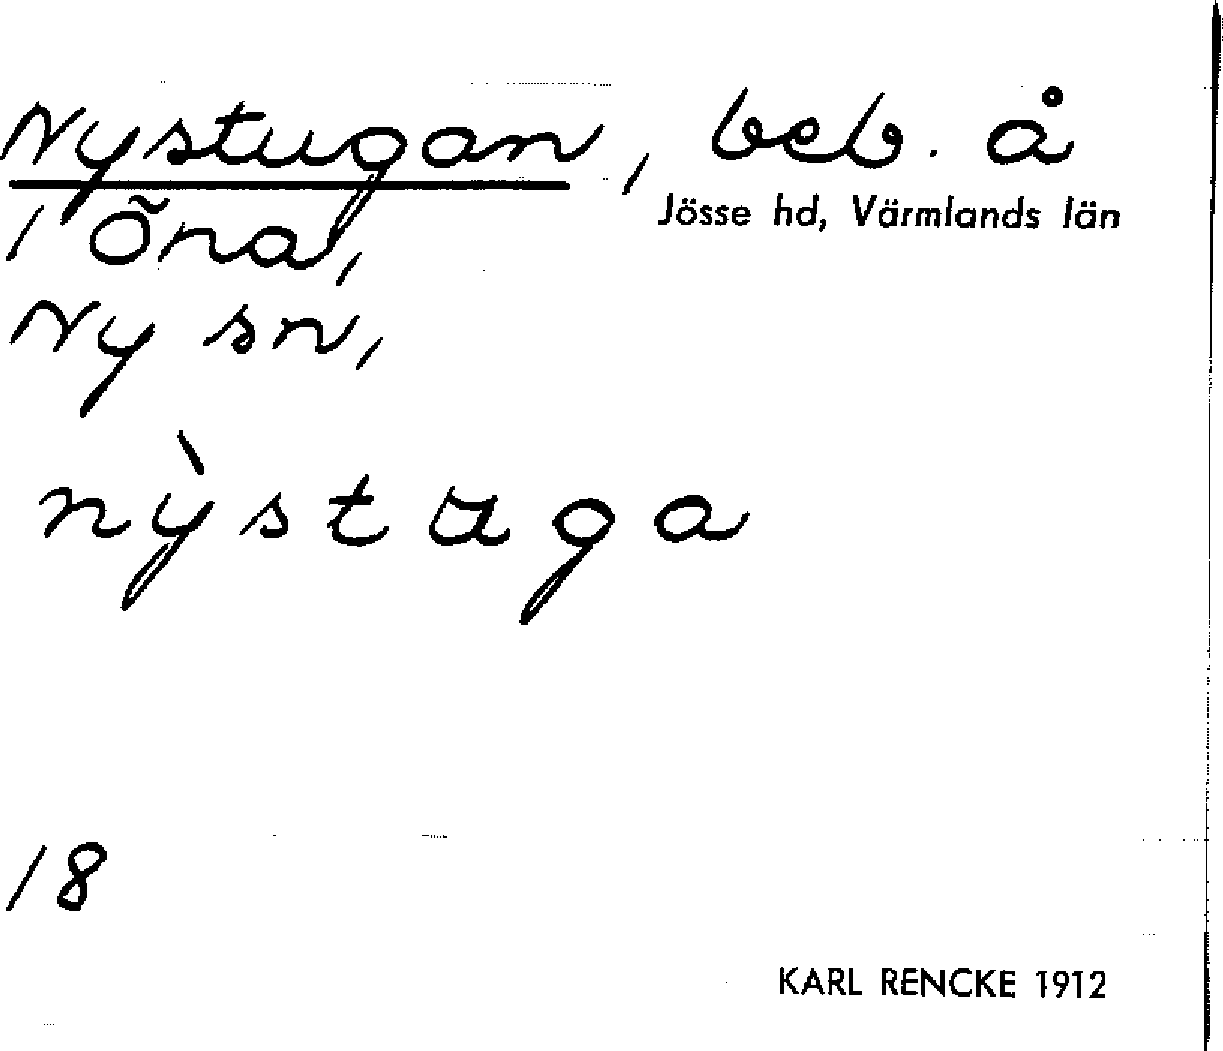 Nystugan, beb. å
Jösse hd, Värmlands län
1 Öna,
Ny sn,
nỳstuga
18
KARL RENCKE 1912